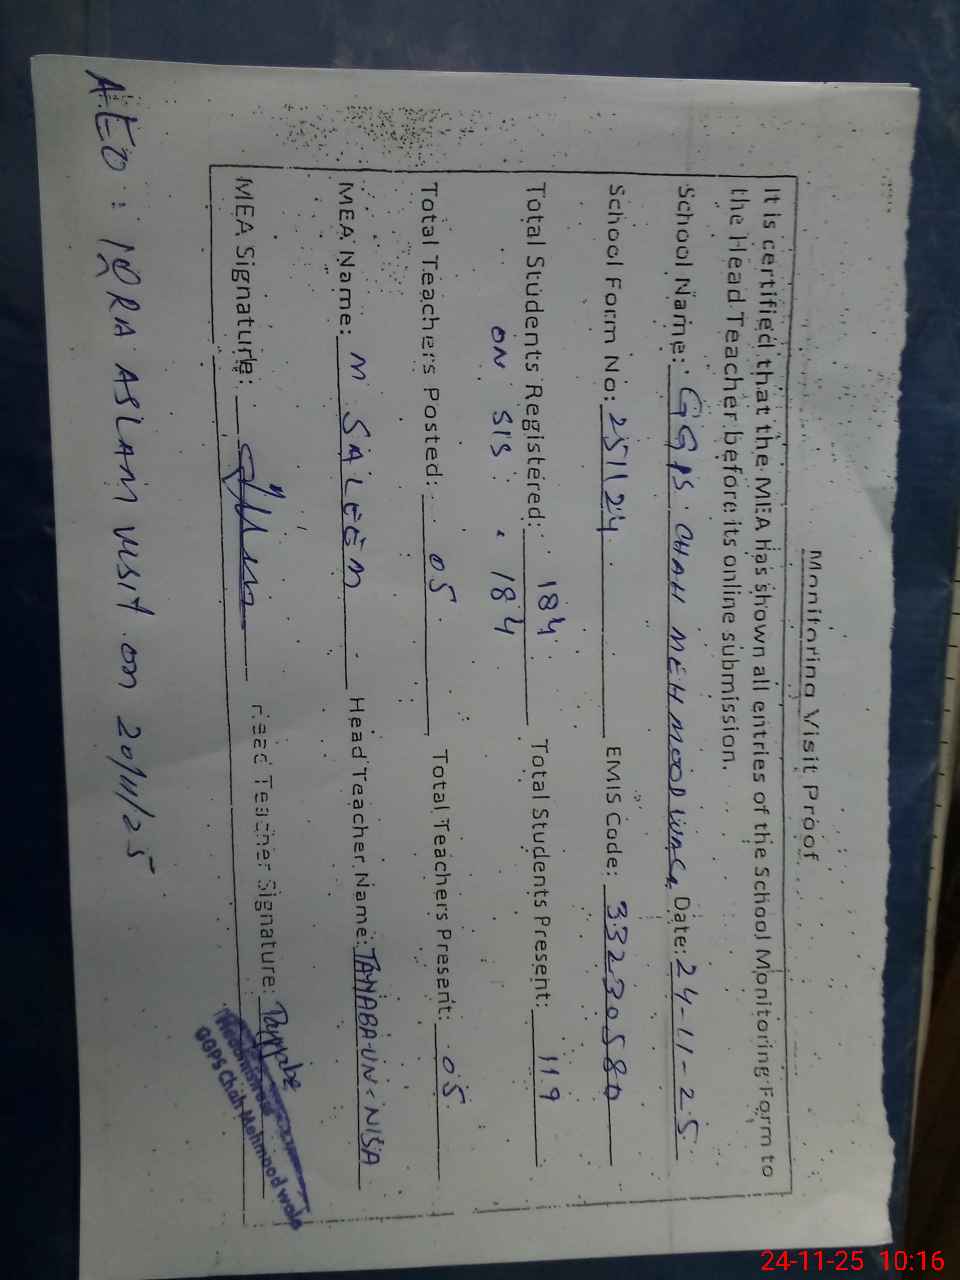 Monitoring Visit Proof
It is certified that the MEA has shown all entries of the School Monitoring Form to
the Head Teacher before its online submission.
School Name: GGPS CHAH MEHMOOD WALA Date: 24-11-25
School Form No: 251124 EMIS Code: 33230580
Total Students Registered: 184 Total Students Present: 119
ON SIS . 184
Total Teachers Posted: 05 Total Teachers Present: 05
MEA Name: M SALEEM Head Teacher Name: TAYYABA-UN-NISA
MEA Signature: Head Teacher Signature: Tayyaba
Headmistress
GGPS Chah Mehmood wala
AEO: IQRA ASLAM VISIT on 20/11/25
24-11-25 10:16